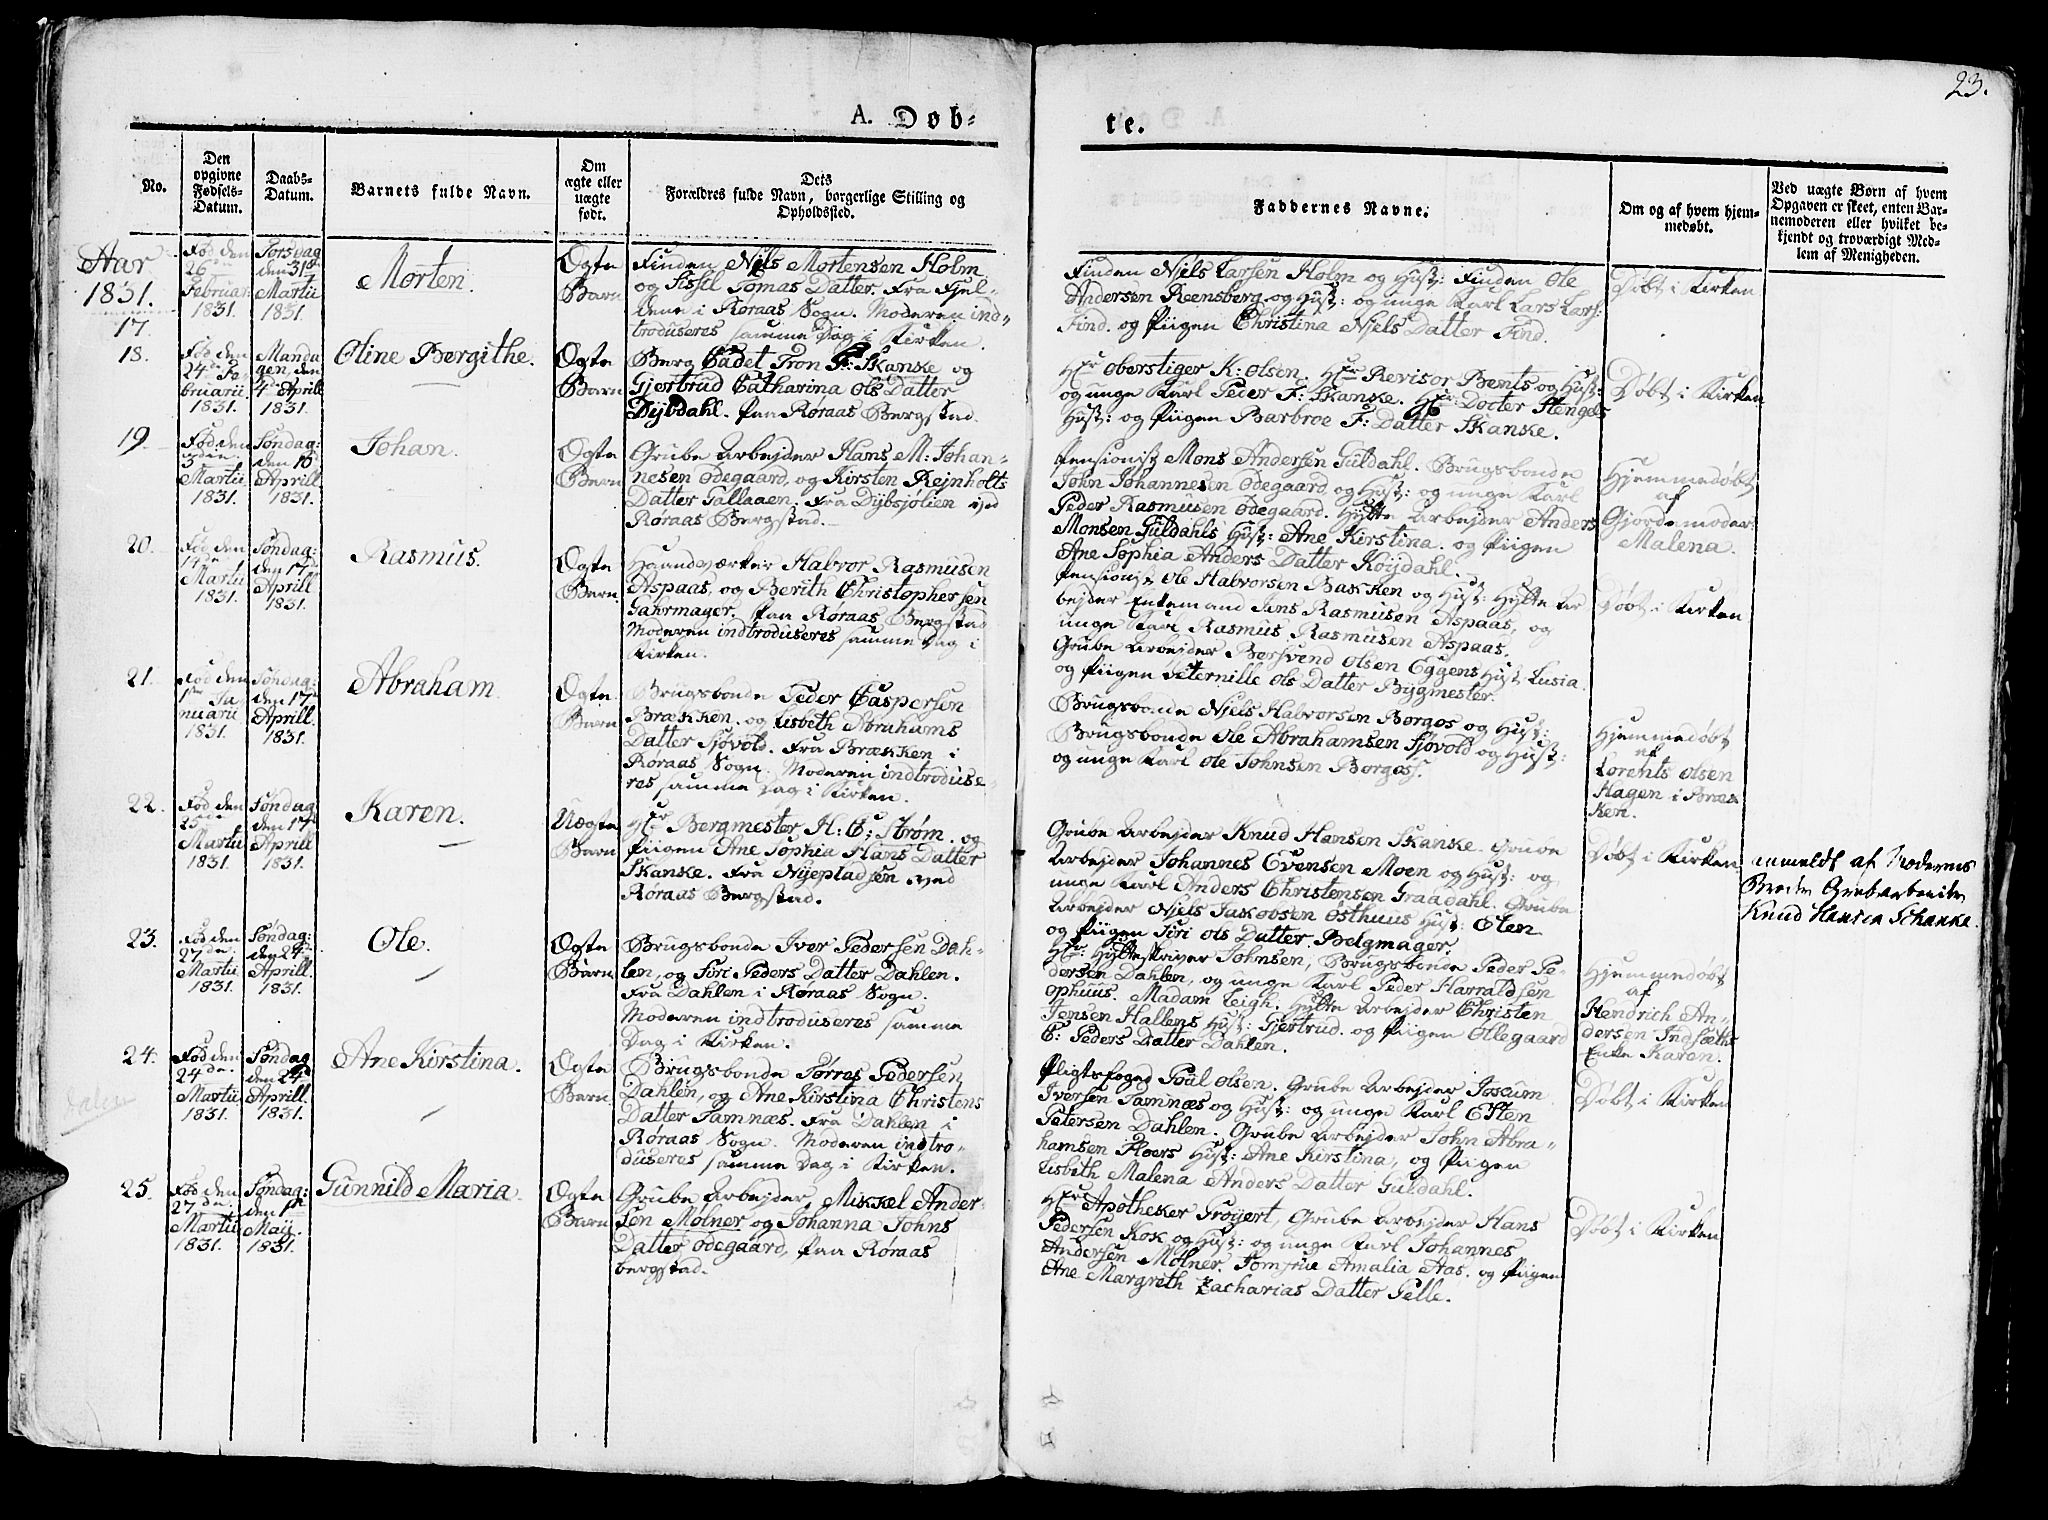 23.
A. Døb-
te.
No.
Den
opgivne
Fødsels-
Datum.
Daabs-
Datum.
Barnets fulde Navn.
Om
ægte eller
uægte
født.
Dets
Forældres fulde Navn, borgerlige Stilling og
Opholdssted.
Faddernes Navne.
Om og af hvem hjem-
medøbt.
Ved uægte Børn af hvem
Opgaven er skeet, enten Bar-
nemoderen eller hvilket be-
kjendt og troværdigt Med-
lem af Menigheden.
Aar
1831.
17.
Fød den
26de
Februar:
1831.
Torsdag
den 31te
Martii
1831.
Morten.
Ægte
Barn
Finden Niels Mortensen Holm
og Sissil Tomas Datter. Fra Fjel-
dene i Røraas Sogn. Moderen ind-
troduseres samme Dag i Kirken.
Finden Niels Larsen Holm og Hust: Finden Ole
Andersen Reensberg og Hust: og unge Karl Lars Lars:
Find. og Piigen Christina Niels Datter Find.
Døbt i Kirken
18.
Fød den
24de Fe-
bruarii
1831.
Manda
gen, den
4de Aprill
1831.
Oline Bergithe.
Ægte
Barn
Berg Cadet Tron F: Skanke og
Gjertrud Catharina Ols Datter
Dybdahl. Paa Røraas Bergstad.
Hr oberstiger K: Olsen. Hr Revisor Bents og Hust:
og unge Karl Peder F: Skanke. Hr: Docter Stengels
Hust: og Piigen Barbroe F: Datter Skanke.
Døbt i Kirken
19.
Fød den
3den
Martii
1831.
Søndag:
den 10de
Aprill
1831.
Johan.
Ægte
Barn
Grube Arbejder Hans M: Johan-
nesen Ødegaard, og Kirsten Rejnholts
Datter Gallaaen. Fra Dybsjølien ved
Røraas Bergstad.
Pensionist Mons Andersen Guldahl. Brugsbonde
John Johannesen Ødegaard og Hust: og unge Karl
Peder Rasmusen Ødegaard. Hytte Arbejder Anders
Monsen Guldahls Hust: Ane Kirstina. og Piigen
Ane Sophia Anders Datter Køijdahl.
Hjemmedøbt
af
Gjordemoder:
Malena.
20.
Fød den
14de
Martii
1831.
Søndag:
den 17de
Aprill
1831.
Rasmus.
Ægte
Barn.
Haandværker Halvor Rasmusen
Aspaas, og Berith Christophersen
Gahrmager. Paa Røraas Bergstad
Moderen indtroduseres samme Dag i
Kirken.
Pensionist Ole Halvorsen Bakken og Hust: Hytte Ar
bejder Enkemand Jens Rasmusen Aspaas, og
unge Karl Rasmus Rasmusen Aspaas.
Grube Arbejder Bersvend Olsen Eggens Hust: Lusia.
og Piigen Peternille Ols Datter Bygmester.
Døbt i Kirken
21.
Fød den
1ste Ja
nuarii
1831.
Søndag:
den 17de
Aprill.
1831.
Abraham
Ægte
Barn
Brugsbonde Peder Caspersen
Brækken. og Lisbeth Abrahams
Datter Sjøvold. Fra Brækken i
Røraas Sogn. Moderen indtroduse-
res samme Dag i Kirken.
Brugsbonde Niels Halvorsen Borgos og Hust:
Brugsbonde Ole Abrahamsen Sjøvold og Hust:
og unge Karl Ole Johnsen Borgos.
Hjemmedøbt
af
Lorents Olsen
Hagen i Bræk
ken.
22.
Fød den
25de
Martii
1831.
Søndag
den 17de
Aprill
1831.
Karen.
Uægte
Barn
Hr Bergmester H: C: Strøm. og
Piigen Ane Sophia Hans Datter
Skanke. Fra Nyepladsen ved
Røraas Bergstad.
Grube Arbejder Knud Hansen Skanke. Grube
Arbejder Johannes Evensen Moen og Hust: og
unge Karl Anders Christensen Graadahl. Grube
Arbejder Niels Jakobsen Osthuus Hust: Elen
og Piigen Siri Ols Datter Belgmager.
Døbt i Kirken
anmeldt af Moderens
Broder Grubearbeider
Knud Hansen Schanke.
23.
Fød den
27de
Martii
1831.
Søndag:
den 24de
Aprill.
1831.
Ole.
Ægte
Barn
Brugsbonde Iver Pedersen Dah-
len, og Siri Peders Datter Dahlen.
Fra Dahlen i Røraas Sogn.
Moderen indtroduseres samme
Dag i Kirken.
Hr: Hytteskriver Johnsen, Brugsbonde Peder Pe-
dersen Dahlen, og unge Karl Peder Harraldsen
ophuus. Madam Leigh. Hytte Arbejder Christen
Jensen Hallens Hust: Gjertrud. og Piigen Ollegaard
C: Peders Datter Dahlen.
Hjemmedøbt
af
Hendrich An-
dersen Indsæths
Enke Karen.
24.
Fød den
24de
Martii
1831.
Søndag
den 24de
Aprill.
1831.
Ane Kirstina.
Ægte
Barn
Brugsbonde Tørres Pedersen
Dahlen, og Ane Kirstina Christens
Datter Tamnæs. Fra Dahlen i
Røraas Sogn. Moderen indtro-
duseres samme Dag i Kirken.
Pligtsfoged Poul Olsen. Grube Arbejder Joscum
Iversen Tamnæs og Hust: og unge Karl Esten
Petersen Dahlen. Grube Arbejder John Abra-
hamsen Floers Hust: Ane Kirstina, og Piigen
Lisbeth Malena Anders Datter Guldahl.
Døbt i Kirken
25.
Fød den
27de
Martii
1831.
Søndag:
den 1ste
Maij.
1831.
Gunnild Maria
Ægte
Barn
Grube Arbejder Mikkel Ander-
sen Mølner og Johanna Johns
Datter Ødegaard, Paa Røraas
bergstad.
Hr: Apotheker Grøyert, Grube Arbejder Hans
Pedersen Kok og Hust: og unge Karl Johannes
Andersen Mølner. Jomfrue Amalia Aas. og Piigen
Ane Margrith Zacharias Datter Gelle.
Døbt i Kirken